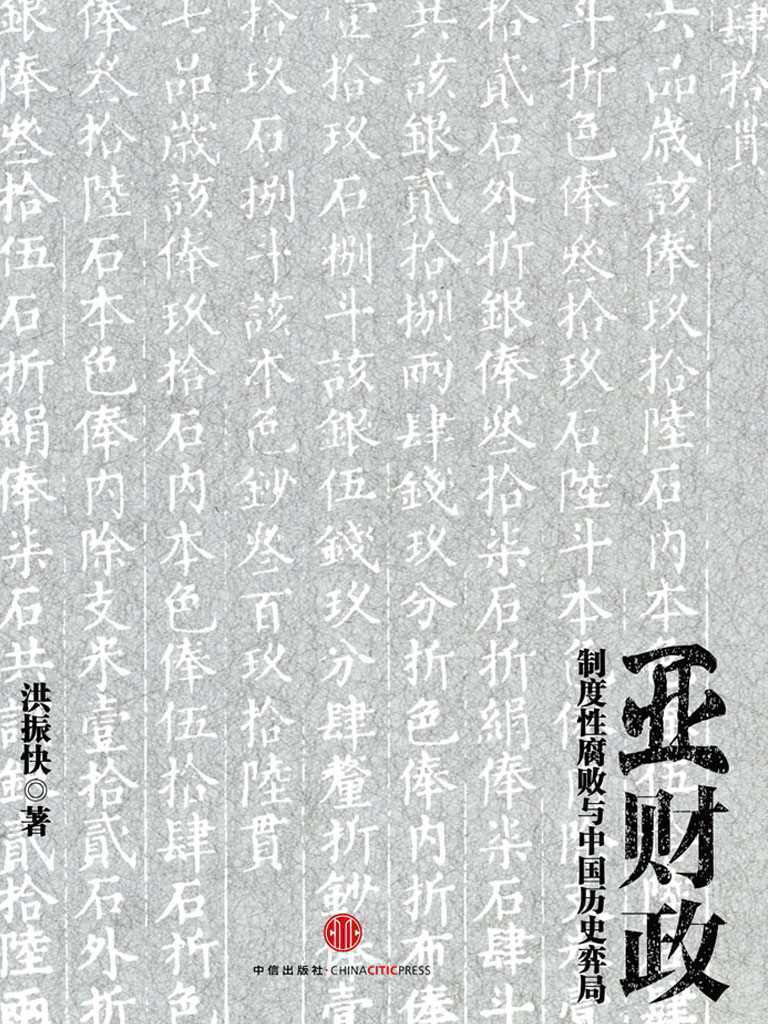 肆拾貫
六品歲該俸玖拾陸石內本
斗折色俸叁拾玖石陸斗本
拾貳石外折銀俸叁拾柒石折絹俸柒石肆斗
共該銀貳拾捌兩肆錢玖分折色俸內折布俸
壹拾玖石捌斗該銀伍錢玖分肆釐折鈔俸壹
拾玖石捌斗該本色鈔叁百玖拾陸貫
七品歲該俸玖拾石內本色俸伍拾肆石折色
俸叁拾陸石本色俸內除支米壹拾貳石外折
銀俸叁拾伍石折絹俸柒石共該銀貳拾陸兩
亚财政
制度性腐败与中国历史弈局
洪振快◎著
中信出版社·CHINACITICPRESS